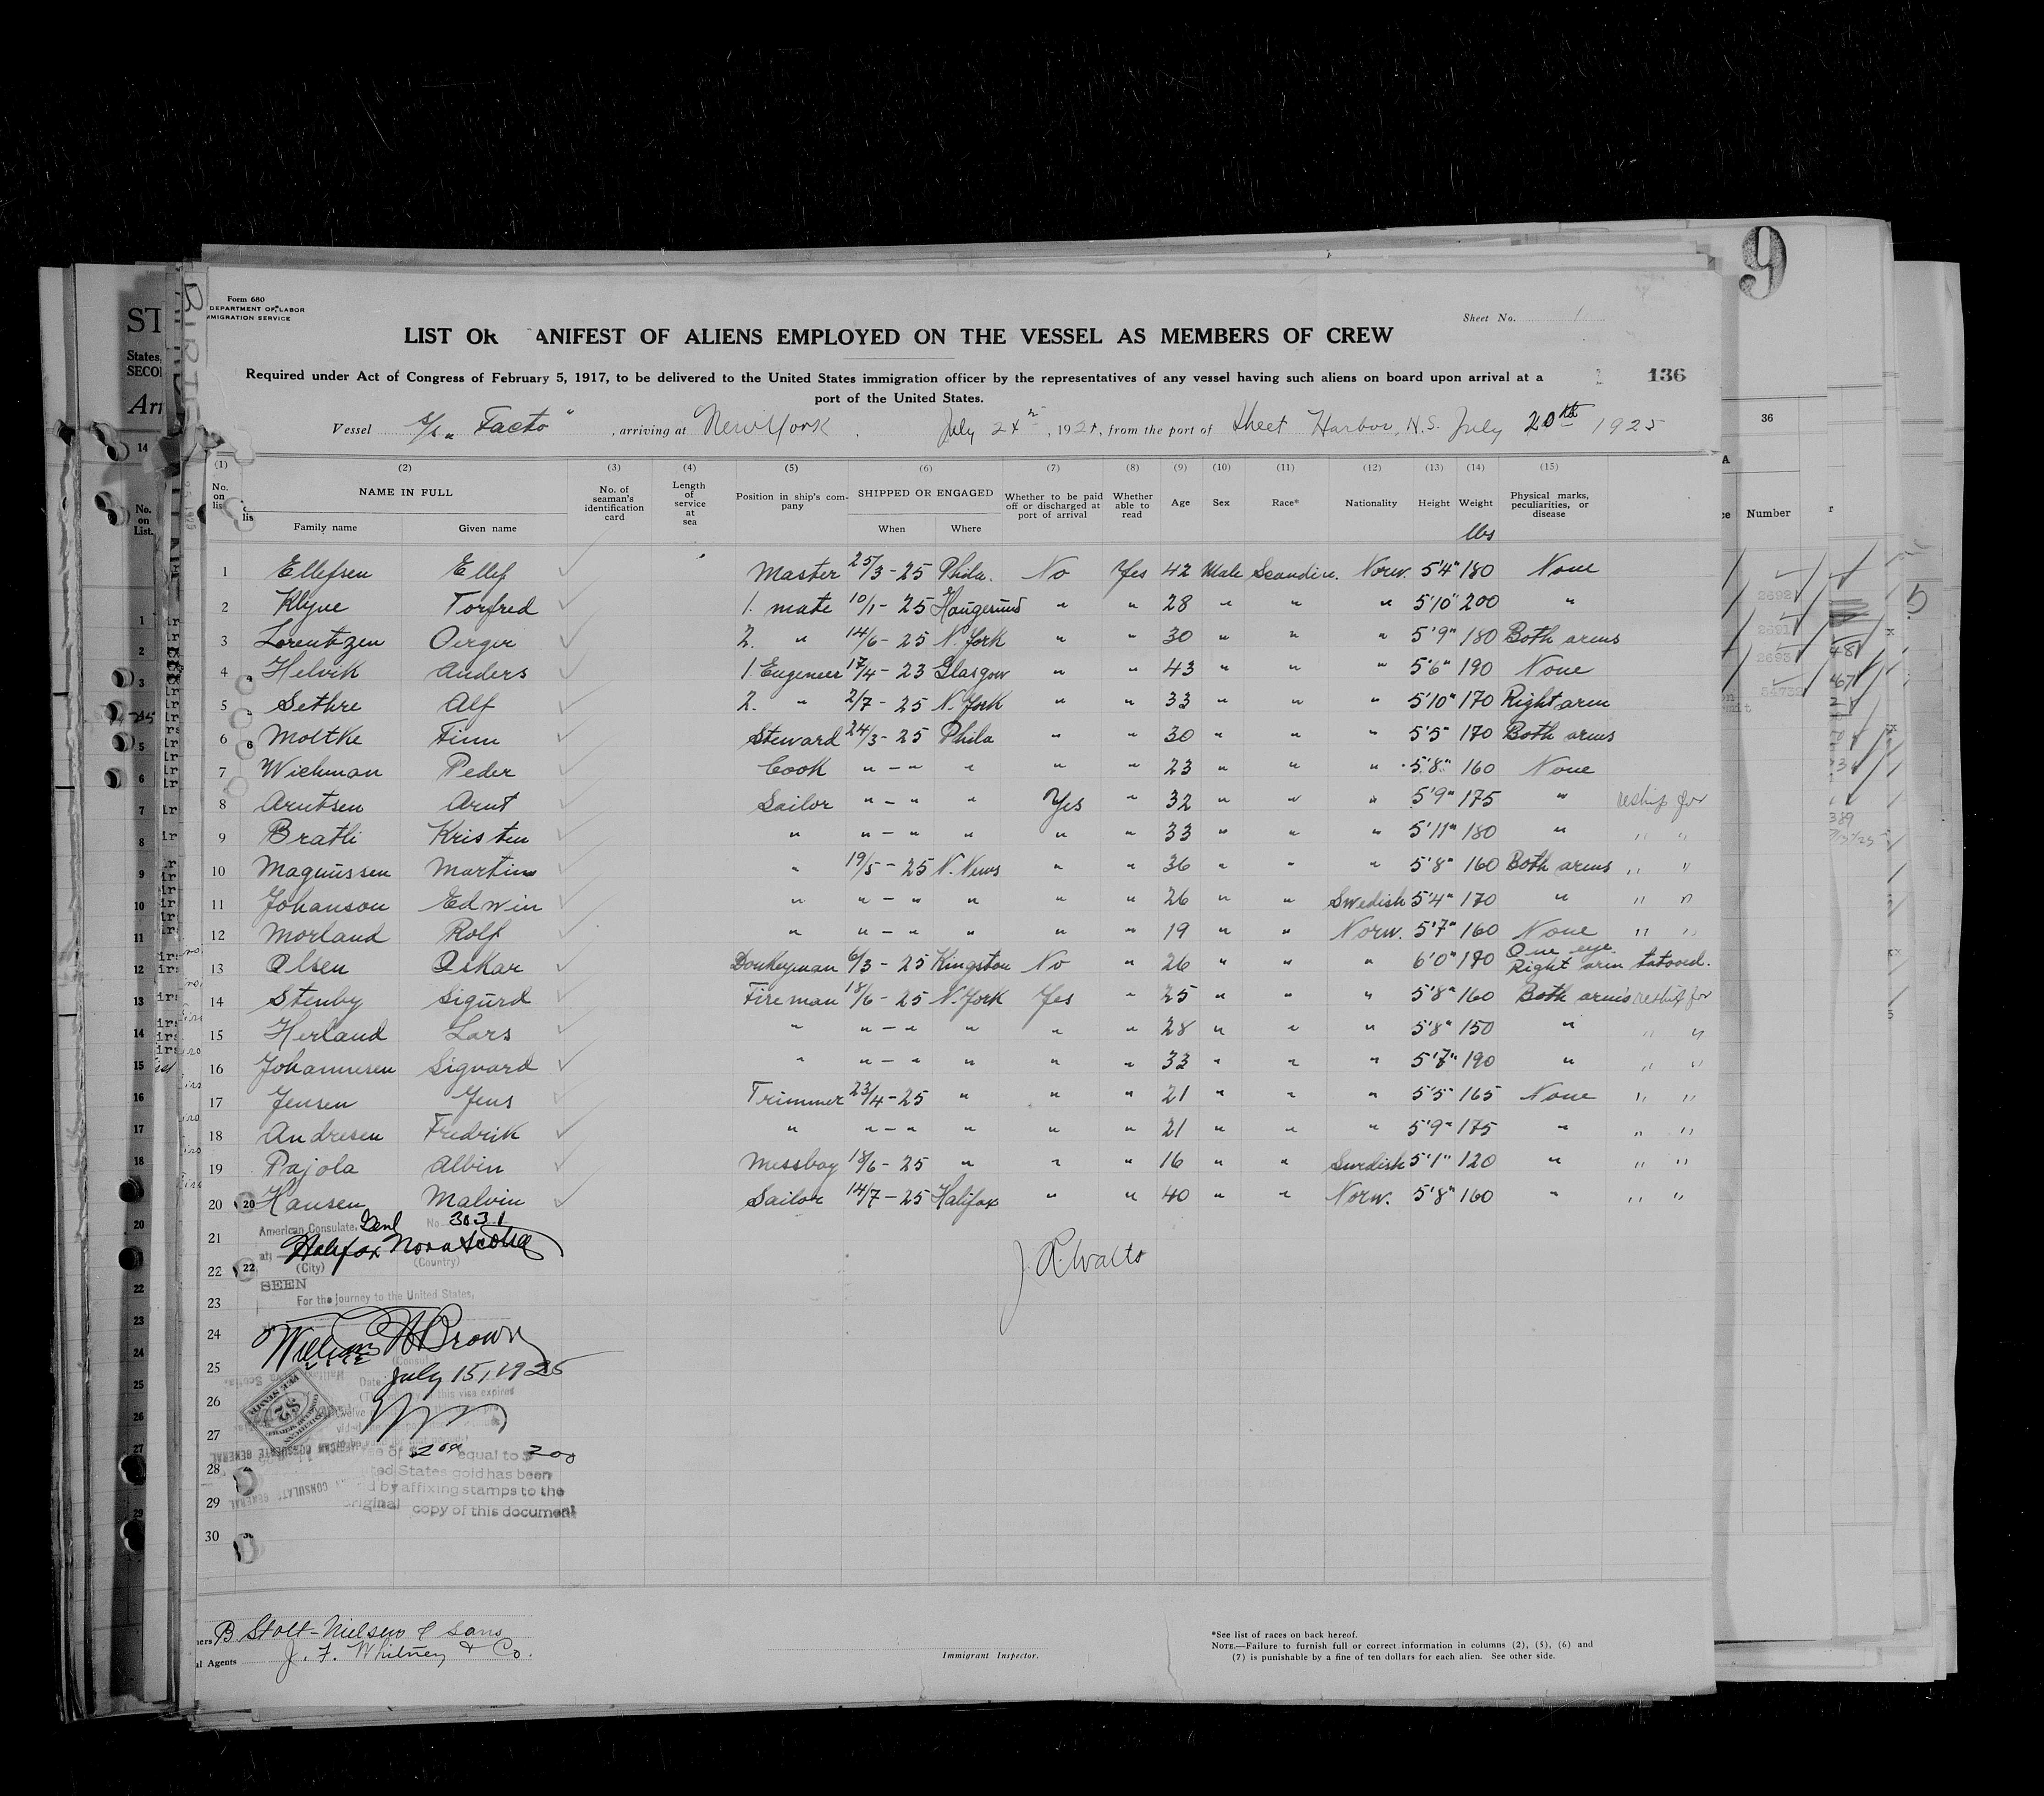 Form 680
DEPARTMENT OF LABOR
MMIGRATION SERVICE
Sheet No. 1
LIST OR ANIFEST OF ALIENS EMPLOYED ON THE VESSEL AS MEMBERS OF CREW
Required under Act of Congress of February 5, 1917, to be delivered to the United States immigration officer by the representatives of any vessel having such aliens on board upon arrival at a
port of the United States.
136
Vessel S/S "Facto", arriving at New York, July 24, 192, from the port of Sheet Harbor, N.S. July 20th 1925
(1) (2) (3) (4) (5) (6) (7) (8) (9) (10) (11) (12) (13) (14) (15)
No. on list NAME IN FULL Family name Given name No. of seaman's identification card Length of service at sea Position in ship's company SHIPPED OR ENGAGED When Where Whether to be paid off or discharged at port of arrival Whether able to read Age Sex Race* Nationality Height Weight lbs Physical marks, peculiarities, or disease
1 Ellefsen Ellef Master 25/3 - 25 Phila. No Yes 42 Male Scandin. Norw. 5'4" 180 None
2 Klyve Torfred 1. mate 10/1 - 25 Haugesund " " 28 " " " 5'10" 200 "
3 Lorentzen Oerger 2. " 14/6 - 25 N. York " " 30 " " " 5'9" 180 Both arms
4 Helvik Anders 1 Engeneer 17/4 - 23 Glasgow " " 43 " " " 5'6" 190 None
5 Sethre Alf 2. " 2/7 - 25 N. York " " 33 " " " 5'10" 170 Right arm
6 Moltke Finn Steward 24/3 - 25 Phila " " 30 " " " 5'5" 170 Both arms
7 Wichman Peder Cook " - " " " " 23 " " " 5'8" 160 None
8 Arntsen Arnt Sailor " - " " Yes " 32 " " " 5'9" 175 " reship for
9 Bratli Kristen " " - " " " " 33 " " " 5'11" 180 " " "
10 Magnussen Martin " 19/5 - 25 N. News " " 36 " " " 5'8" 160 Both arms " "
11 Johanson Edwin " " - " " " " 26 " " Swedish 5'4" 170 " " "
12 Morland Rolf " " - " " " " 19 " " Norw. 5'7" 160 None " "
13 Olsen Oskar Donkeyman 6/3 - 25 Kingston No " 26 " " " 6'0" 170 One eye Right arm tatooed.
14 Stenby Sigurd Fireman 18/6 - 25 N. York Yes " 25 " " " 5'8" 160 Both arms reship for
15 Herland Lars " " - " " " " 28 " " " 5'8" 150 " " "
16 Johannesen Sigvard " " - " " " " 33 " " " 5'7" 190 " " "
17 Jensen Jens Trimmer 23/4 - 25 " " " 21 " " " 5'5" 165 None " "
18 Andresen Fredrik " " - " " " " 21 " " " 5'9" 175 " " "
19 Pajola Albin Messboy 18/6 - 25 " " " 16 " " Swedish 5'1" 120 " " "
20 Hansen Malvin Sailor 14/7 - 25 Halifax " " 40 " " Norw. 5'8" 160 " " "
American Consulate, Genl No. 3031
21
at Halifax Nova Scotia
(City) (Country)
22
SEEN
For the journey to the United States,
23
24
William Brown
(Consul
25
Date July 15, 1925
this visa expires
26
27
$2.00 equal to $ 200
28
ted States gold has been
d by affixing stamps to the
29
original copy of this document
30
B. Stolt-Nielsen & Sons
al Agents J. F. Whitney & Co.
Immigrant Inspector.
*See list of races on back hereof.
NOTE.—Failure to furnish full or correct information in columns (2), (5), (6) and
(7) is punishable by a fine of ten dollars for each alien. See other side.
9
36
Number